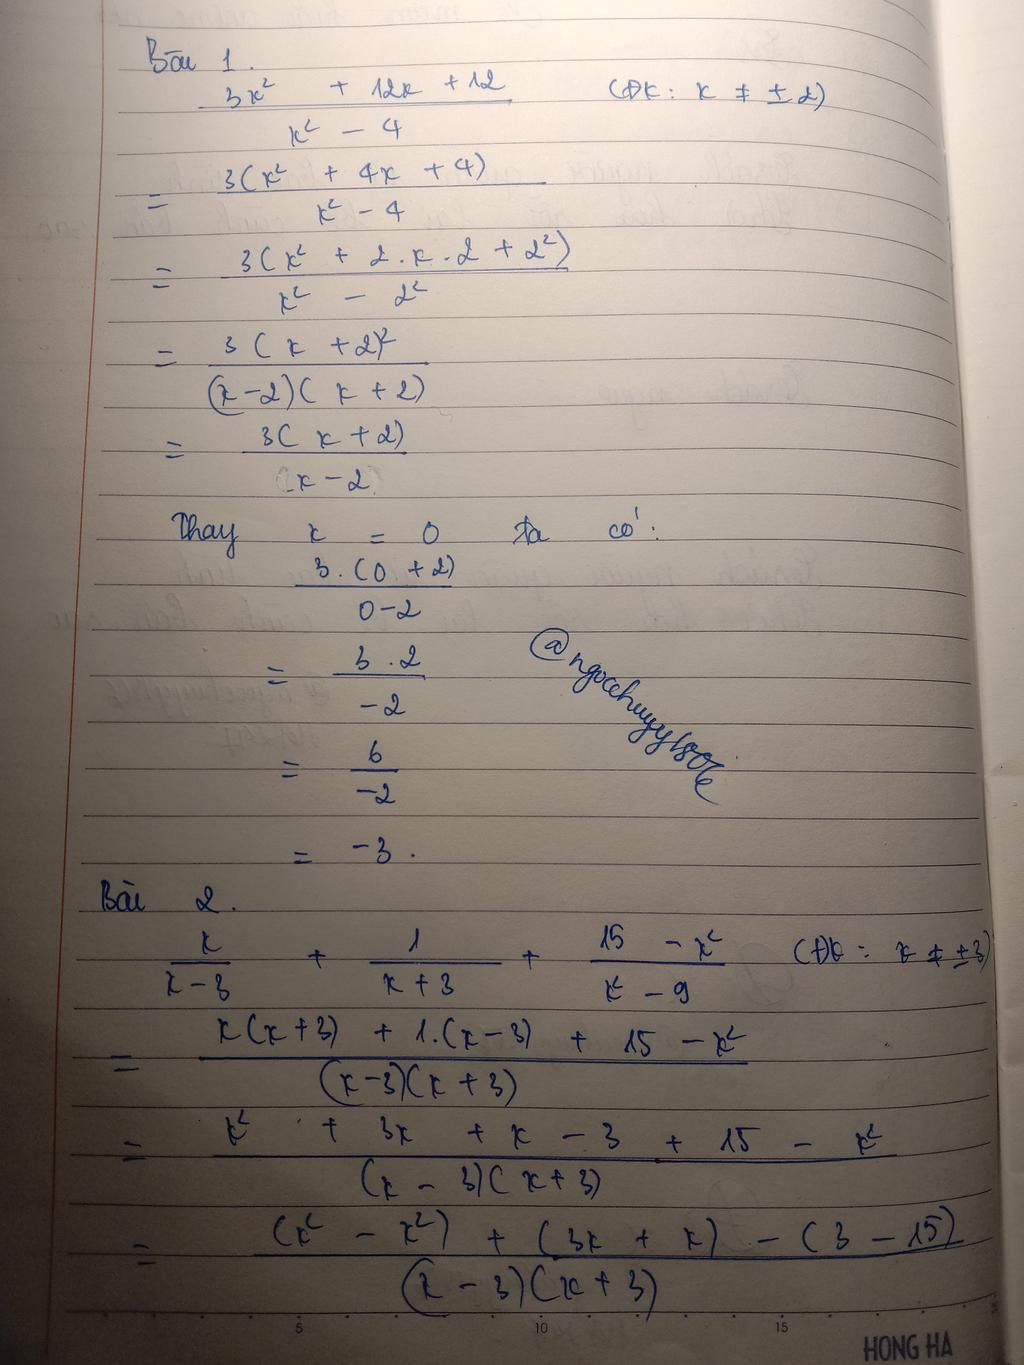 Bài 1.
3x² + 12x + 12 / x² - 4 (ĐK: x ≠ ± 2)
= 3(x² + 4x + 4) / x² - 4
= 3(x² + 2.x.2 + 2²) / x² - 2²
= 3(x + 2)² / (x-2)(x + 2)
= 3(x + 2) / x - 2
Thay x = 0 ta có:
3.(0 + 2) / 0 - 2
= 3.2 / -2
= 6 / -2
= -3.
Bài 2.
x / x - 3 + 1 / x + 3 + 15 - x² / x² - 9 (ĐK: x ≠ ±3)
= x(x + 3) + 1.(x - 3) + 15 - x² / (x-3)(x + 3)
= x² + 3x + x - 3 + 15 - x² / (x - 3)(x + 3)
= (x² - x²) + (3x + x) - (3 - 15) / (x - 3)(x + 3)
5 10 15
HONG HA